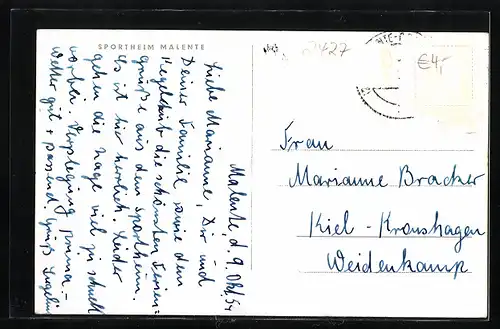 SPORTHEIM MALENTE
Malente, d. 9. Okt. 54
Liebe Marianne, Dir und
Deiner Familie sowie dem
Kegelclub die schönsten Ferien=
grüße aus dem Sportheim.
Es ist hier herrlich. Leider
gehen die Tage viel zu schnell
vorbei. Verpflegung prima –
Wetter gut + passend. Gruß
21427
€4,-
Frau
Marianne Bracker
Kiel-Kronshagen
Weidenkamp